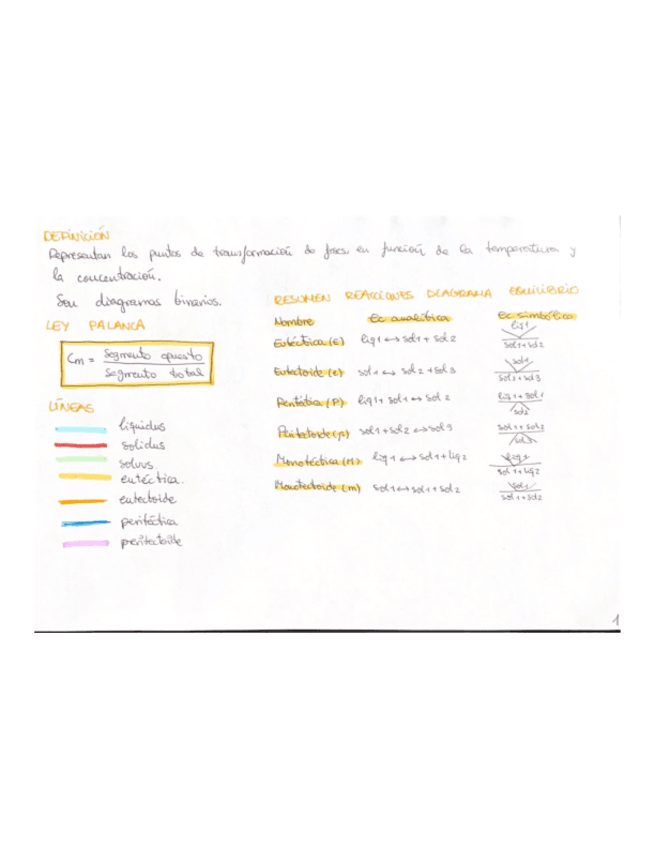 DEFINICIÓN
Representan los puntos de transformación de fases en función de la temperatura y
la concentración.
Son diagramas binarios.
LEY PALANCA
Cm = Segmento opuesto / Segmento total
LÍNEAS
líquidus
solidus
solvus
eutéctica.
eutectoide
peritéctica
peritectoide
RESUMEN REACCIONES DIAGRAMA EQUILIBRIO
Nombre Ec analítica Ec simbólica
Eutéctica (E) liq 1 ↔ sol 1 + sol 2 liq 1 / sol 1 + sol 2
Eutectoide (e) sol 1 ↔ sol 2 + sol 3 sol 1 / sol 2 + sol 3
Peritéctica (P) liq 1 + sol 1 ↔ sol 2 liq 1 + sol 1 / sol 2
Peritectoide (p) sol 1 + sol 2 ↔ sol 3 sol 1 + sol 2 / sol 3
Monotéctica (M) liq 1 ↔ sol 1 + liq 2 liq 1 / sol 1 + liq 2
Monotectoide (m) sol 1 ↔ sol 1 + sol 2 sol 1 / sol 1 + sol 2
1